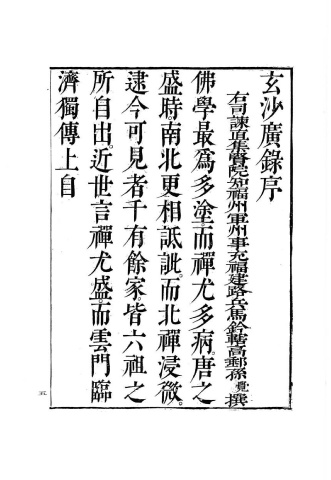 玄沙廣錄序
右司諫直集賢院知福州軍州事充福建路兵馬鈐轄高郵孫覺撰
佛學最爲多塗而禪尤多病唐之
盛時南北更相詆訿而北禪浸微
逮今可見者千有餘家皆六祖之
所自出近世言禪尤盛而雲門臨
濟獨傳上自
五